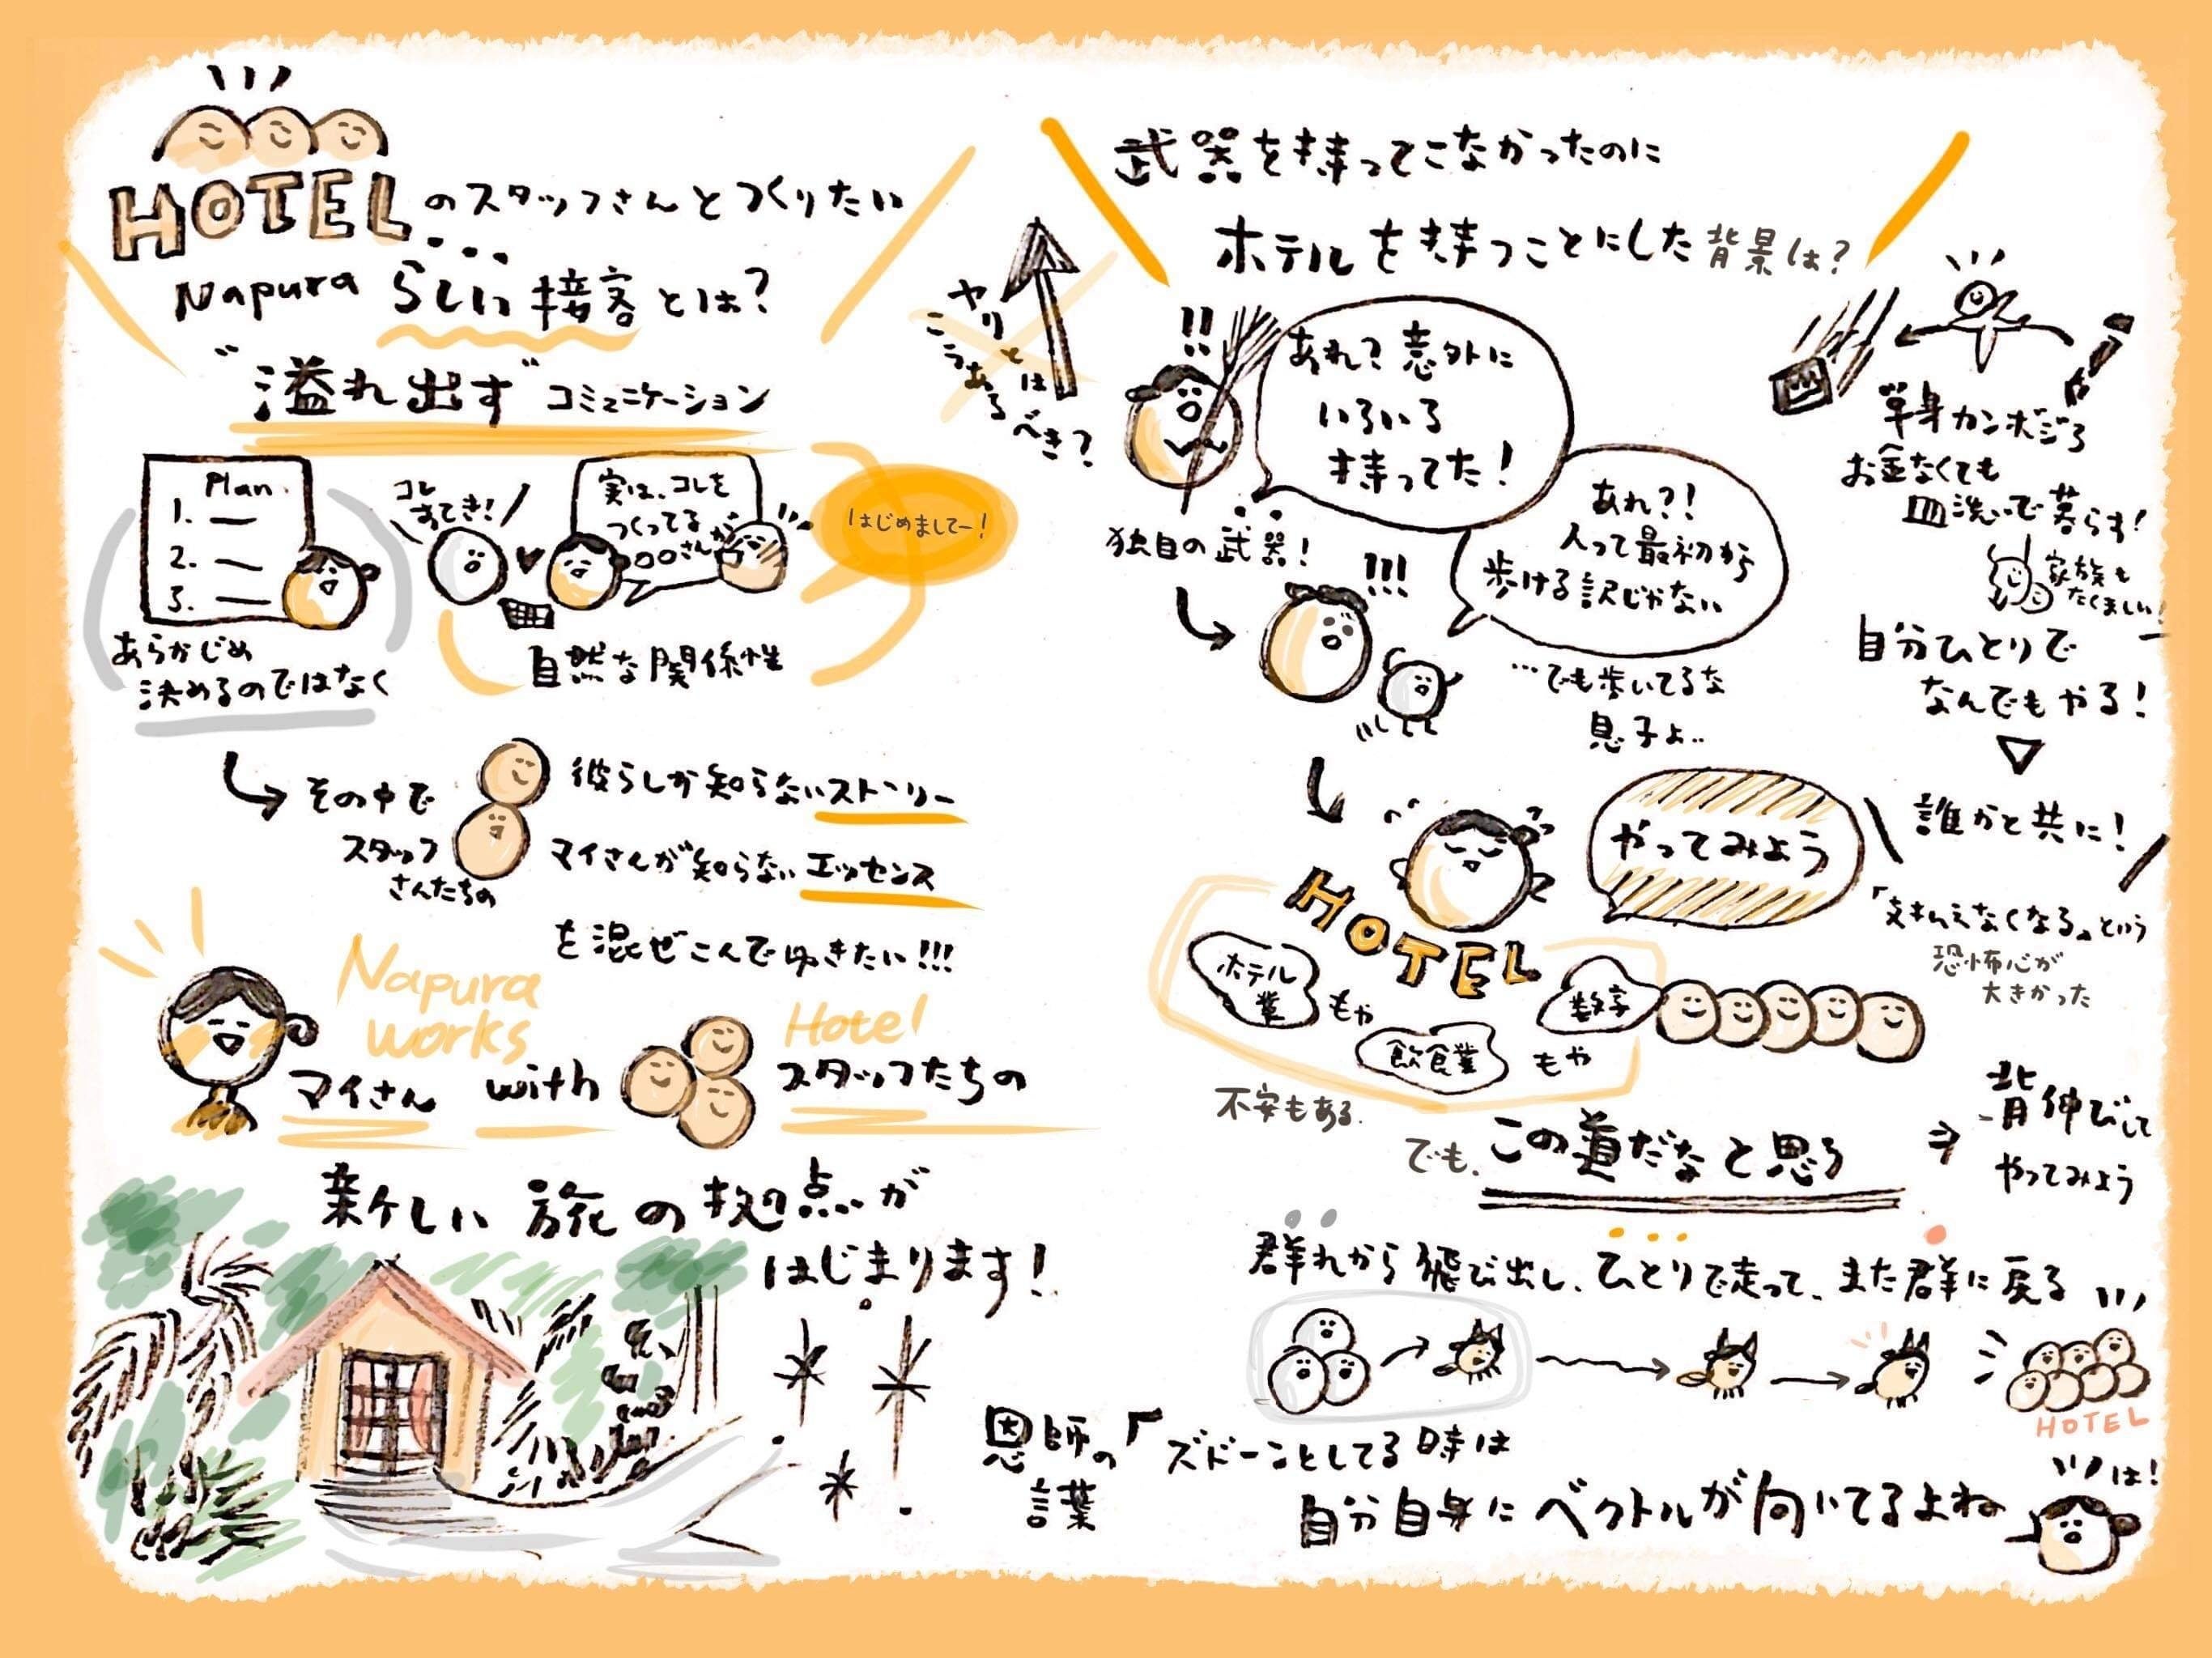 HOTELのスタッフさんとつくりたい
Napuraらしい接客とは?
"溢れ出す"コミュニケーション
Plan.
1.
2.
3.
あらかじめ
決めるのではなく
コレ
すてき!
実は、コレを
つくってる
〇〇さんが
はじめましてー!
自然な関係性
その中で
スタッフ
さんたちの
彼らしか知らないストーリー
マイさんが知らないエッセンス
を混ぜこんでゆきたい!!!
Napura
works
マイさん with
Hotel
スタッフたちの
新しい旅の拠点が
はじまります!
武器を持ってこなかったのに
ホテルを持つことにした背景は?
ヤリとは
こうある
べき?
!!
あれ?意外に
いろいろ
持ってた!
独自の武器!
!!!
あれ?!
人って最初から
歩ける訳じゃない
…でも歩いてるな
息子よ..
単身カンボジア
お金なくても
皿洗いで暮らす!
家族も
たくましい!
自分ひとりで
なんでもやる!
誰かと共に!
「支払えなくなる」という
恐怖心が
大きかった
やってみよう
HOTEL
ホテル
業
もや
飲食業
もや
数字
不安もある.
でも、この道だなと思う
⇒ 背伸びして
やってみよう
群れから飛び出し、ひとりで走って、また群に戻る
HOTEL
恩師の
言葉
「ズドーンとしてる時は
自分自身にベクトルが向いてるよね
は!